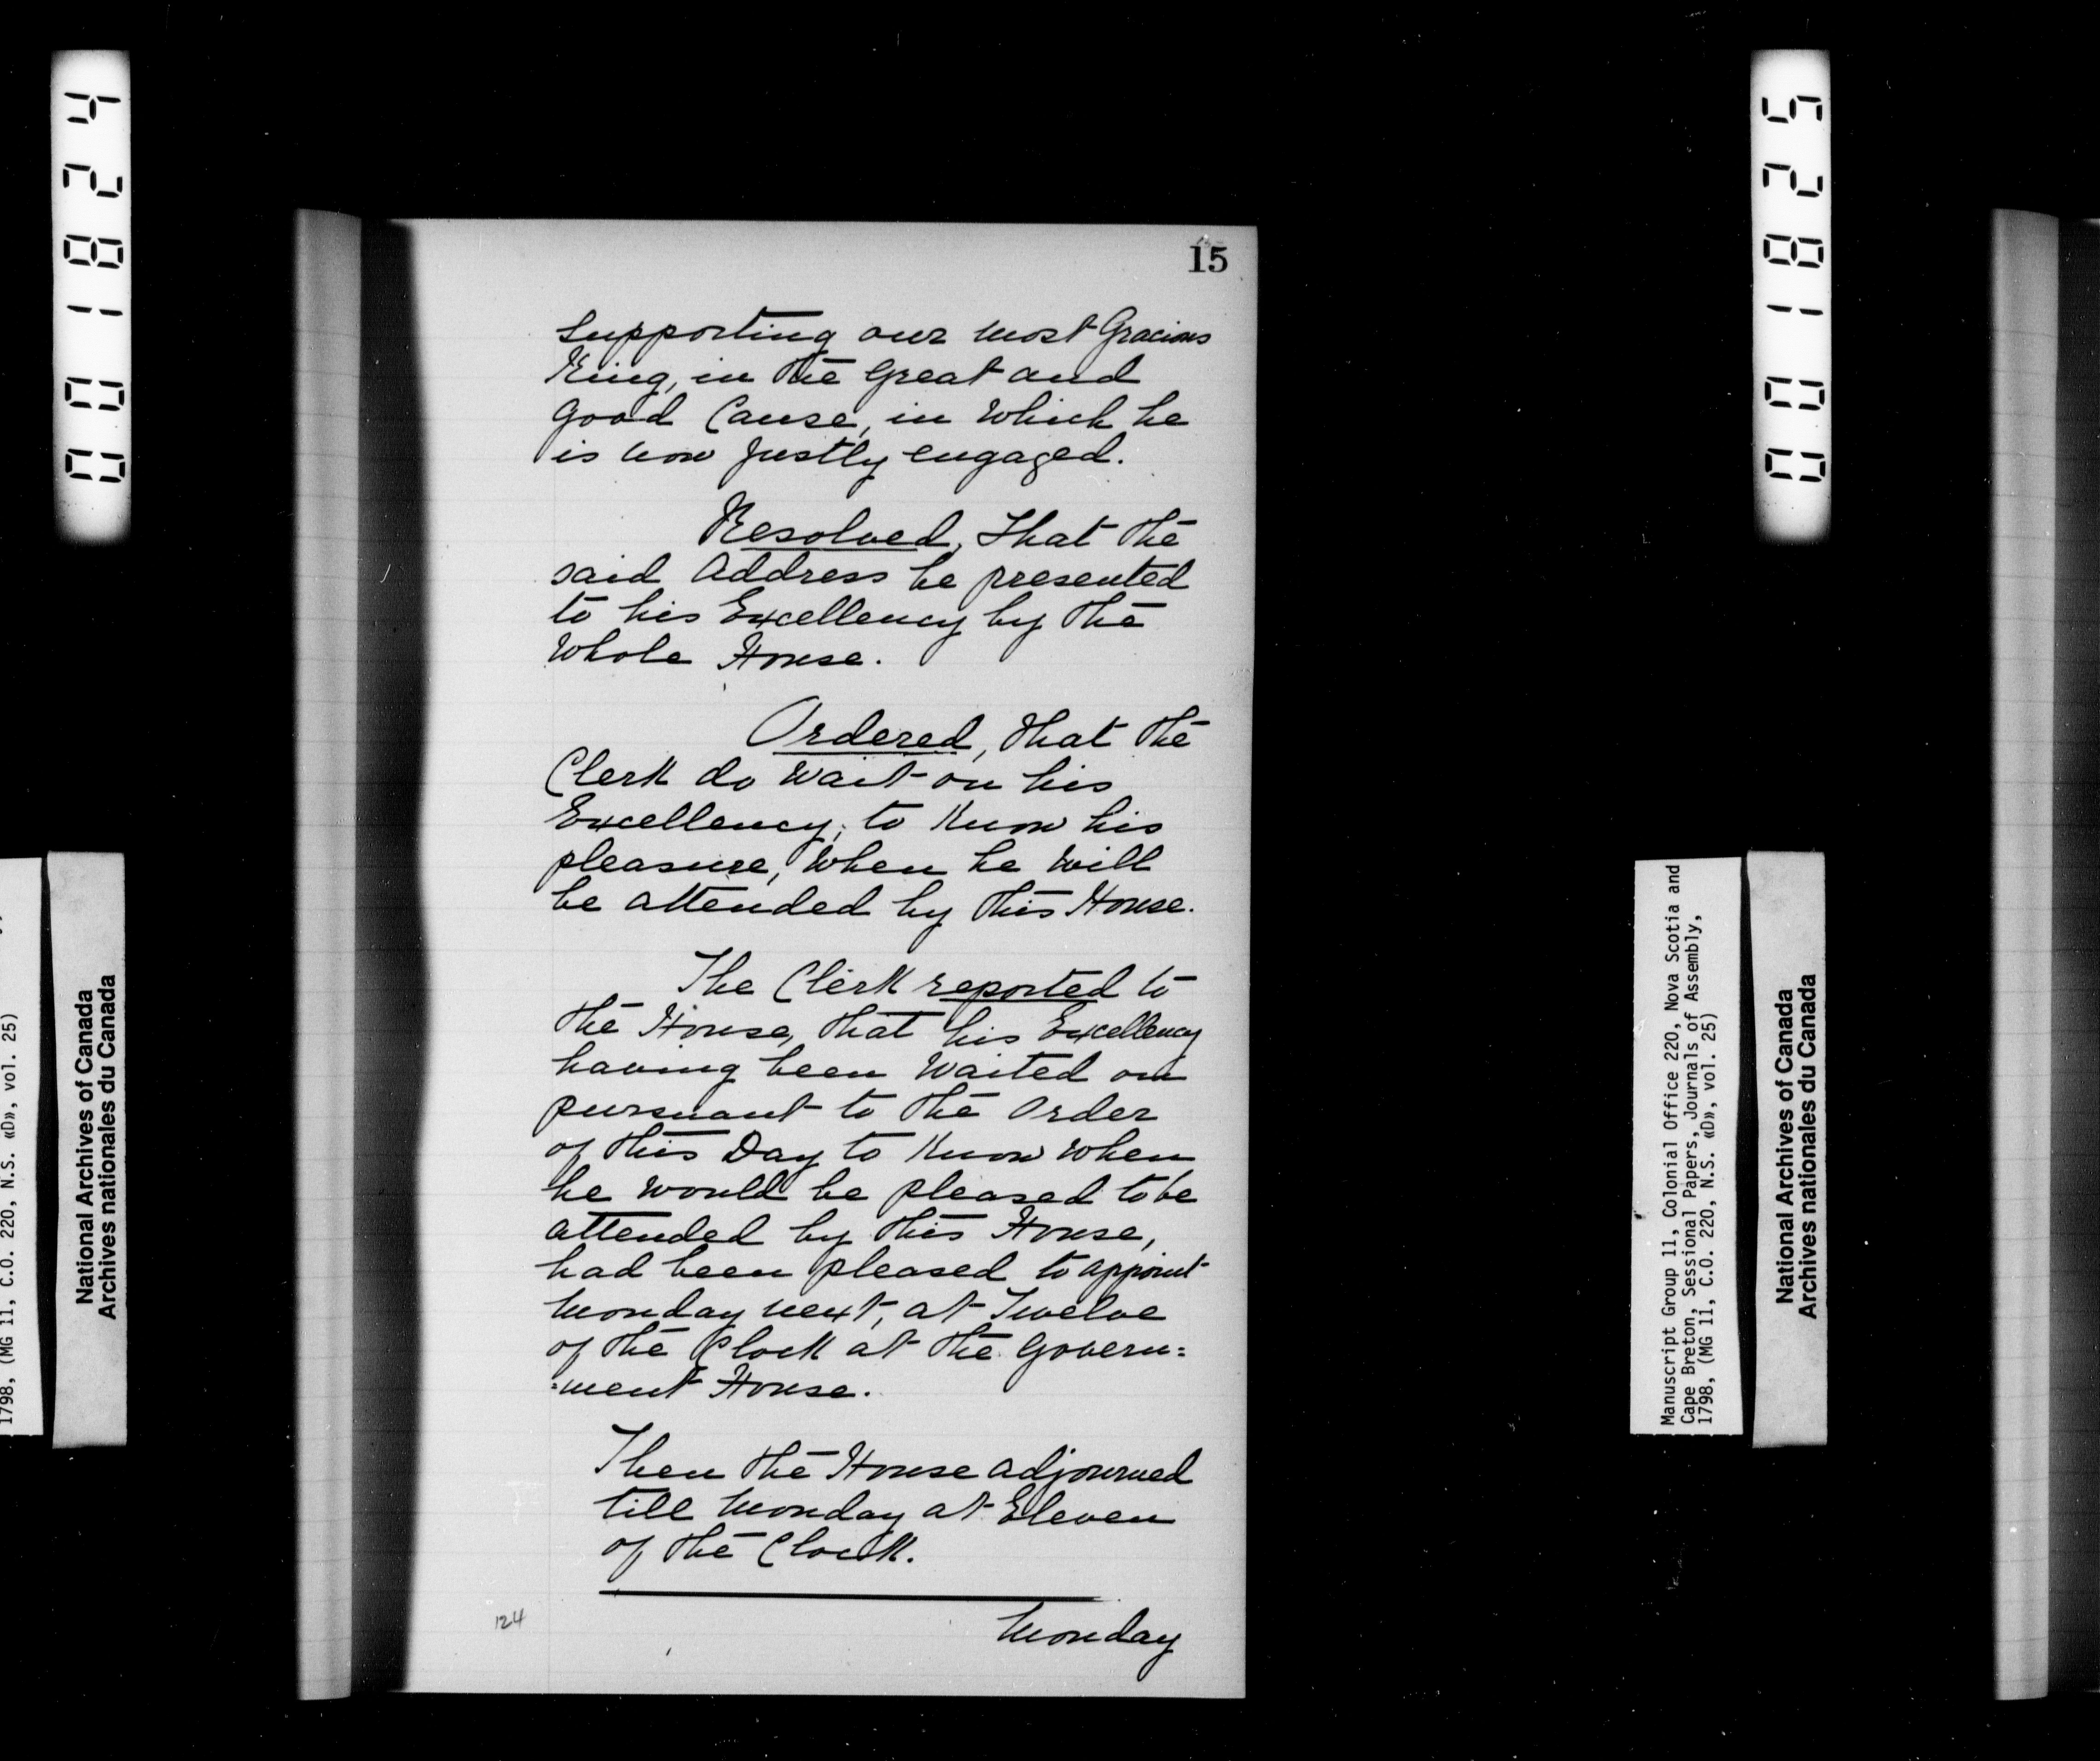 001824
001825
15
supporting our most Gracious
King, in the Great and
Good Cause, in Which he
is now justly engaged.
Resolved, That the
said Address be presented
to his Excellency by the
Whole House.
Ordered, that the
Clerk do Wait on his
Excellency; to Know his
pleasure, When he Will
be attended by this House.
The Clerk reported to
the House, that his Excellency
having been Waited on
pursuant to the Order
of this Day to Know When
he Would be pleased to be
attended by this House,
had been pleased to appoint
Monday next, at Twelve
of the Clock at the Govern=
=ment House.
Then the House adjourned
till Monday at Eleven
of the Clock.
124
Monday
1798, (MG 11, C.O. 220, N.S. «D», vol. 25)
National Archives of Canada
Archives nationales du Canada
Manuscript Group 11, Colonial Office 220, Nova Scotia and
Cape Breton, Sessional Papers, Journals of Assembly,
1798, (MG 11, C.O. 220, N.S. «D», vol. 25)
National Archives of Canada
Archives nationales du Canada